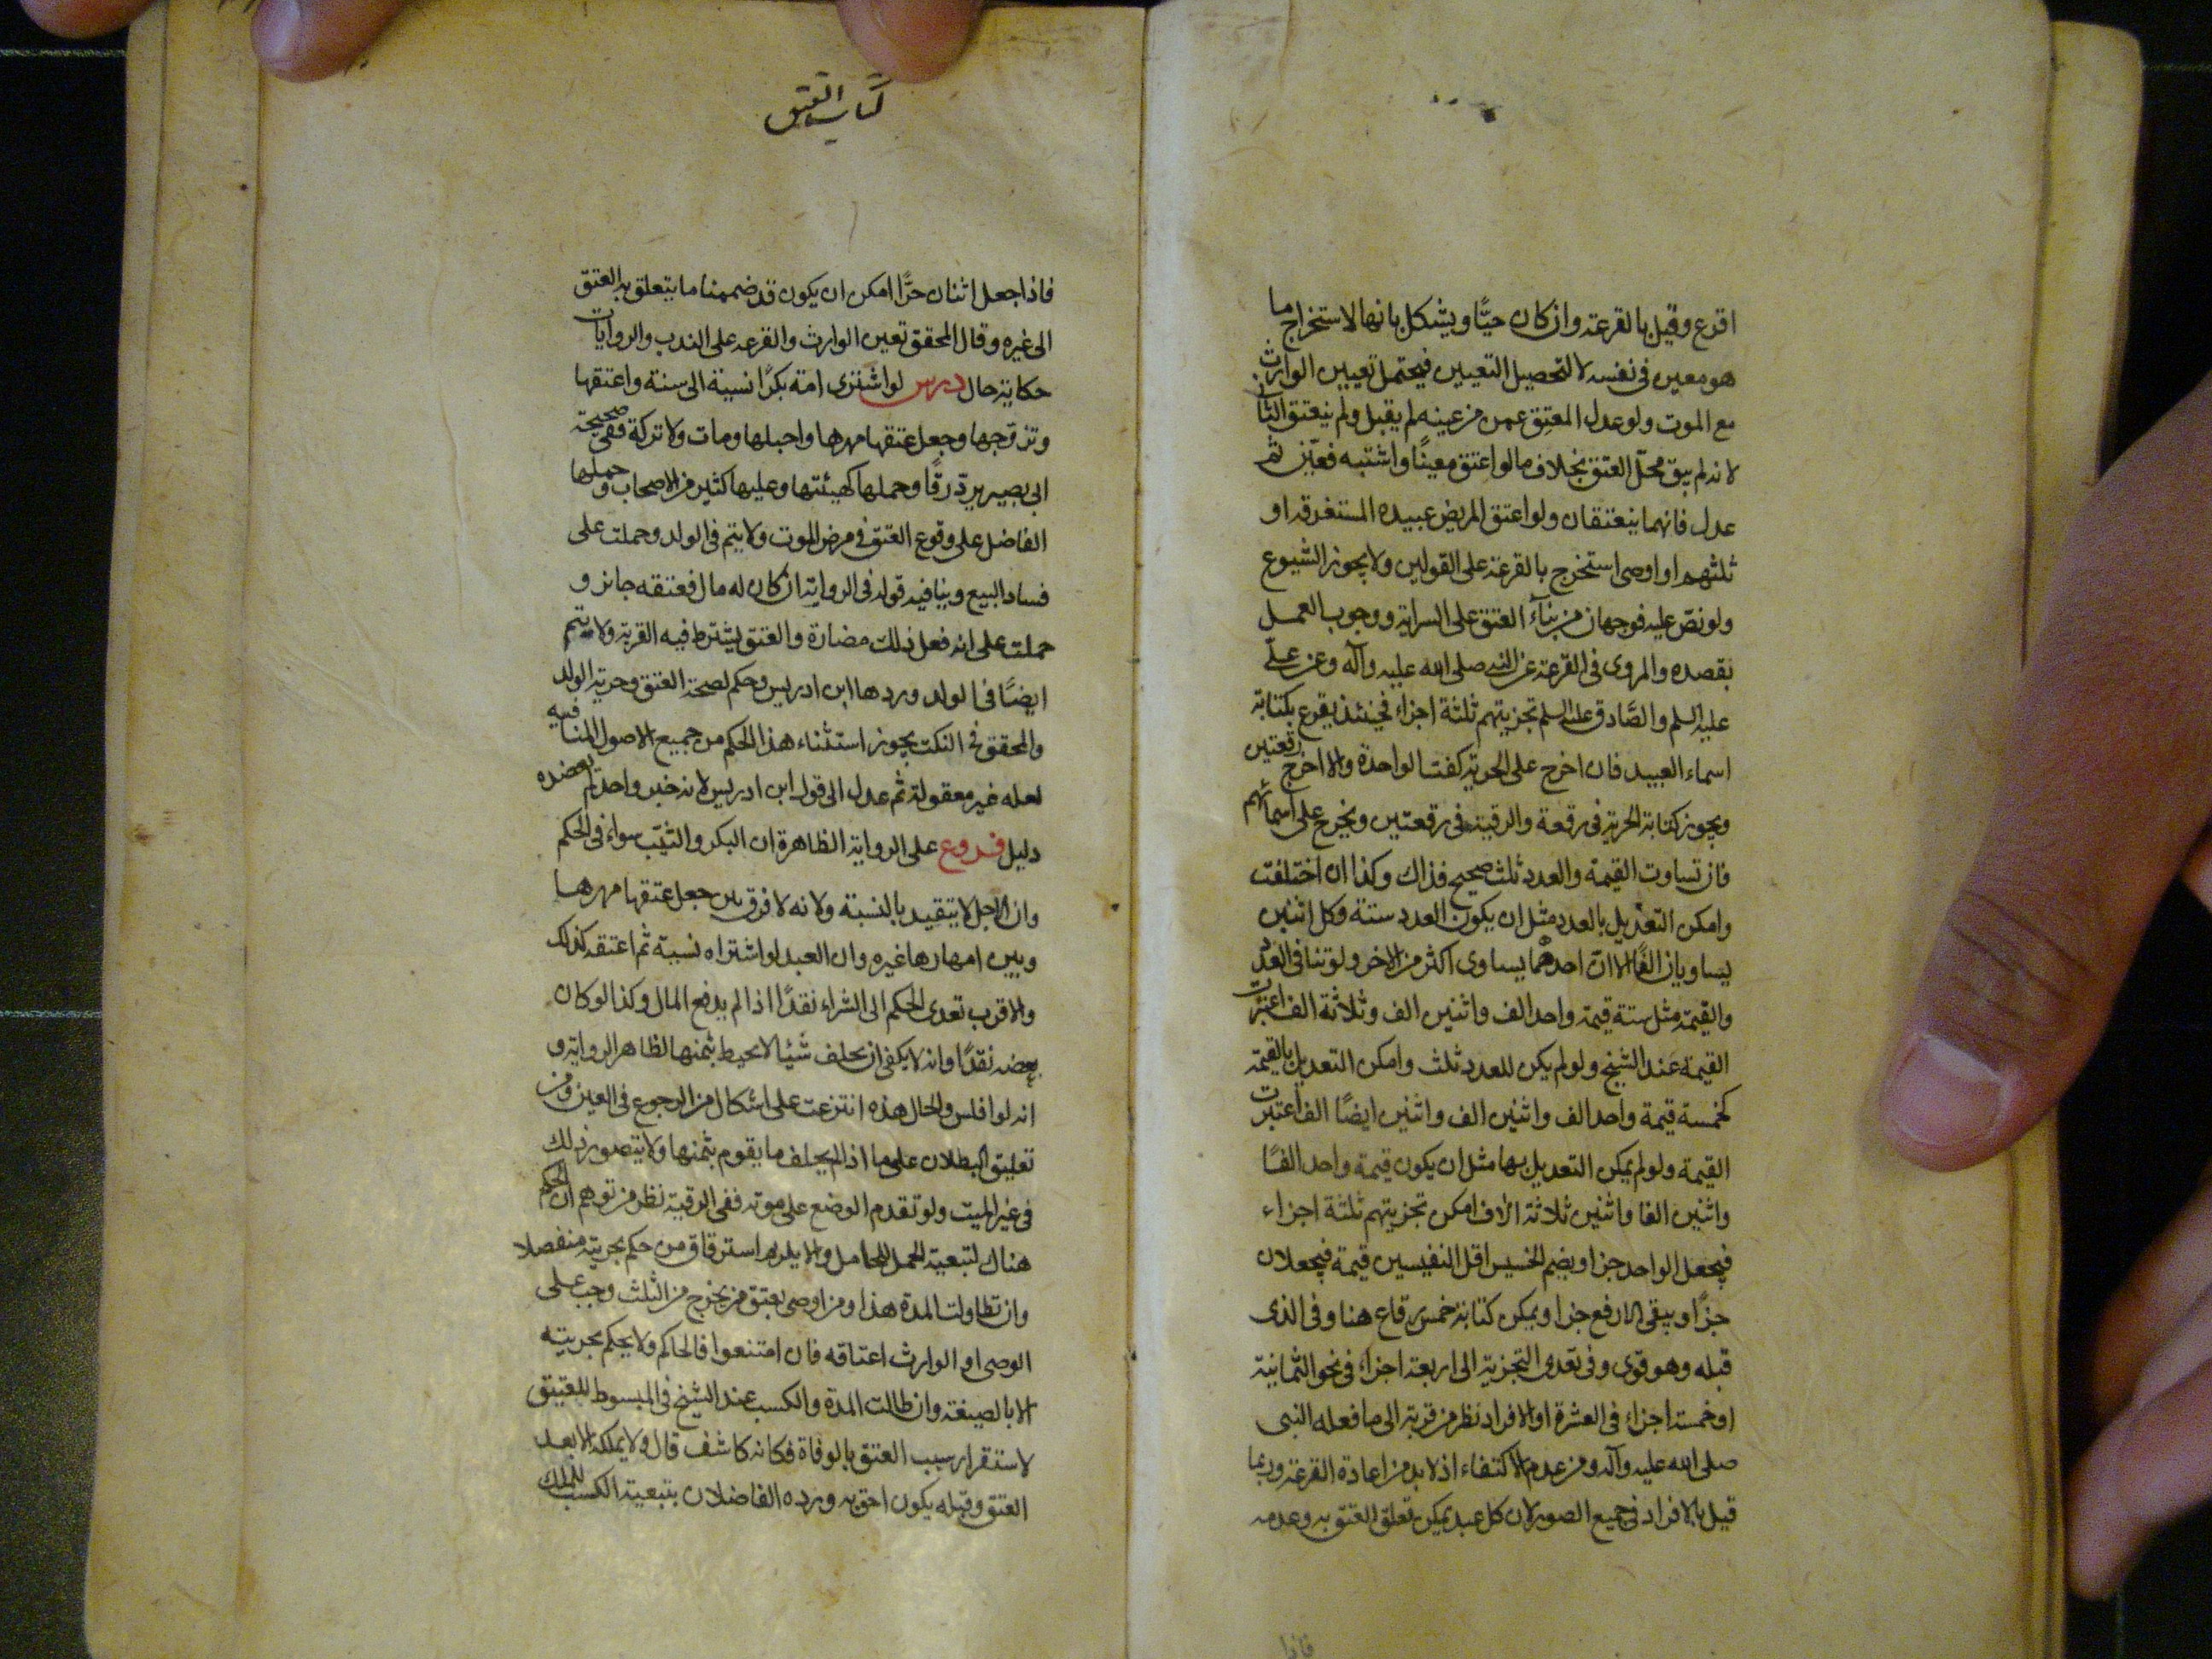 اقرع وقيل بالقرعة وان كان حيًّا ويشكل بانها لاستخراج ما
هو معين فى نفسه لا لتحصيل التعيين فيحتمل تعيين الوارث
مع الموت ولو عدل المعتِق عمن من عينه لم يقبل ولم ينعتق الثانى
لانه لم يبق محلّ العتق بخلاف ما لو اعتق معينًا واشتبه فعيّن ثم
عدل فانهما ينعتقان ولو اعتق المريض عبيده المستغرقة او
ثلثهم او اوصى استخرج بالقرعة على القولين ولا يجوز الشيوع
ولو نصّ عليه فوجهان من بناء العتق على السراية ووجوب العمل
بقصده والمروى فى القرعة عن النبى صلى الله عليه وآله وعن علىّ
عليه السلم والصَّادق عليه السلم تجزيتهم ثلثة اجزاء فحينئذ يقرع بكتابة
اسماء العبيد فان اخرج على الحرية كفت الواحدة والا اخرج رقعتين
ويجوز كتابة الحرية فى رقعة والرقية فى رقعتين ويخرج على اسمائهم
فان تساوت القيمة والعدد ثلث صحيح فذاك وكذا ان اختلفت
وامكن التعديل بالعدد مثل ان يكون العدد ستة وكل اثنين
يساويان الفًا الا انّ احدهما يساوى اكثر من الاخر ولو تنافى العدد
والقيمة مثل ستة قيمة واحد الف واثنين الف وثلاثة الف اعتبرت
القيمة عند الشيخ ولو لم يكن للعدد ثلث وامكن التعديل بالقيمة
كخمسة قيمة واحد الف واثنين الف واثنين ايضًا الف اعتبرت
القيمة ولو لم يمكن التعديل بها مثل ان يكون قيمة واحد الفًا
واثنين الفا واثنين ثلاثة الاف امكن تجزيتهم ثلثة اجزاء
فيجعل الواحد جزا ويضم الخسيس اقل النفيسين قيمة فيجعلان
جزًا ويبقى الارفع جزا ويمكن كتابة خمس رقاع هنا وفى الذى
قبله وهو قوى وفى تعدى التجزية الى اربعة اجزاء فى نحو الثمانية
او خمسة اجزاء فى العشرة او الافراد نظر من قربة الى ما فعله النبى
صلى الله عليه وآله ومن عدم الاكتفاء اذ لا بد من اعادة القرعة وربما
قيل بالافراد فى جميع الصور لان كل عبد يمكن تعلق العتق به وعدمه
فاذا
كتاب العتق
فاذا جعل اثنان حرًّا امكن ان يكون قد ضممنا ما يتعلق به العتق
الى غيره وقال المحقق تعيين الوارث والقرعة على الندب والروايات
حكاية حال درس لو اشترى امة بكرًا نسية الى سنة واعتقها
وتزوّجها وجعل عتقها مهرها واحبلها ومات ولا تركة ففى صحيحة
ابى بصير يردّ رقًّا وحملها كهيئتها وعليها كثير من الاصحاب وحملها
الفاضل على وقوع العتق فى مرض الموت ولا يتم فى الولد وحملت على
فساد البيع وينافيه قوله فى الرواية ان كان له مال فعتقه جايز و
حملت على انه فعل ذلك مضارة والعتق يشترط فيه القربة ولا يتم
ايضًا فى الولد وردها ابن ادريس وحكم لصحة العتق وحرية الولد
والمحقق فى النكت يجوز استثناء هذا الحكم من جميع الاصول المنافية
لعله غير معقولة ثم عدل الى قول ابن ادريس لانه خبر واحد لم يعضده
دليل فروع على الرواية الظاهرة ان البكر والثيّب سواء فى الحكم
وان الاجل لا يتقيد بالنسبة ولانه لا فرق بين جعل عتقها مهرها
وبين امهارها غيره وان العبد لو اشتراه نسية ثم اعتقه كذلك
والاقرب تعدى الحكم الى الشراء نقدًا اذا لم يدفع المال وكذا لو كان
بعضه نقدًا وانه لا يكفى ان يخلف شيئا لا يحيط بثمنها لظاهر الرواية و
انه لو افلس والحال هذه انتزعت على اشكال من الرجوع فى العين ومن
تعليق البطلان على ما اذا لم يخلف ما يقوم بثمنها ولا يتصور ذلك
فى غير الميت ولو تقدم الوضع على موته ففى الرقية نظر من توهم ان الحكم
هناك لتبعية الحمل للحامل والا يلزم استرقاق من حكم بحريته منفصلا
وان تطاولت المدة هذا ومن اوصى بعتق من يخرج من الثلث وجب على
الوصى او الوارث اعتاقه فان امتنعوا فالحاكم ولا يحكم بحريته
الا بالصيغة وان طالت المدة والكسب عند الشيخ فى المبسوط للعتيق
لاستقرار سبب العتق بالوفاة فكانه كاشف قال ولا يملكه الا بعد
العتق وقبله يكون احق به ورده الفاضلان بتبعية الكسب للملك